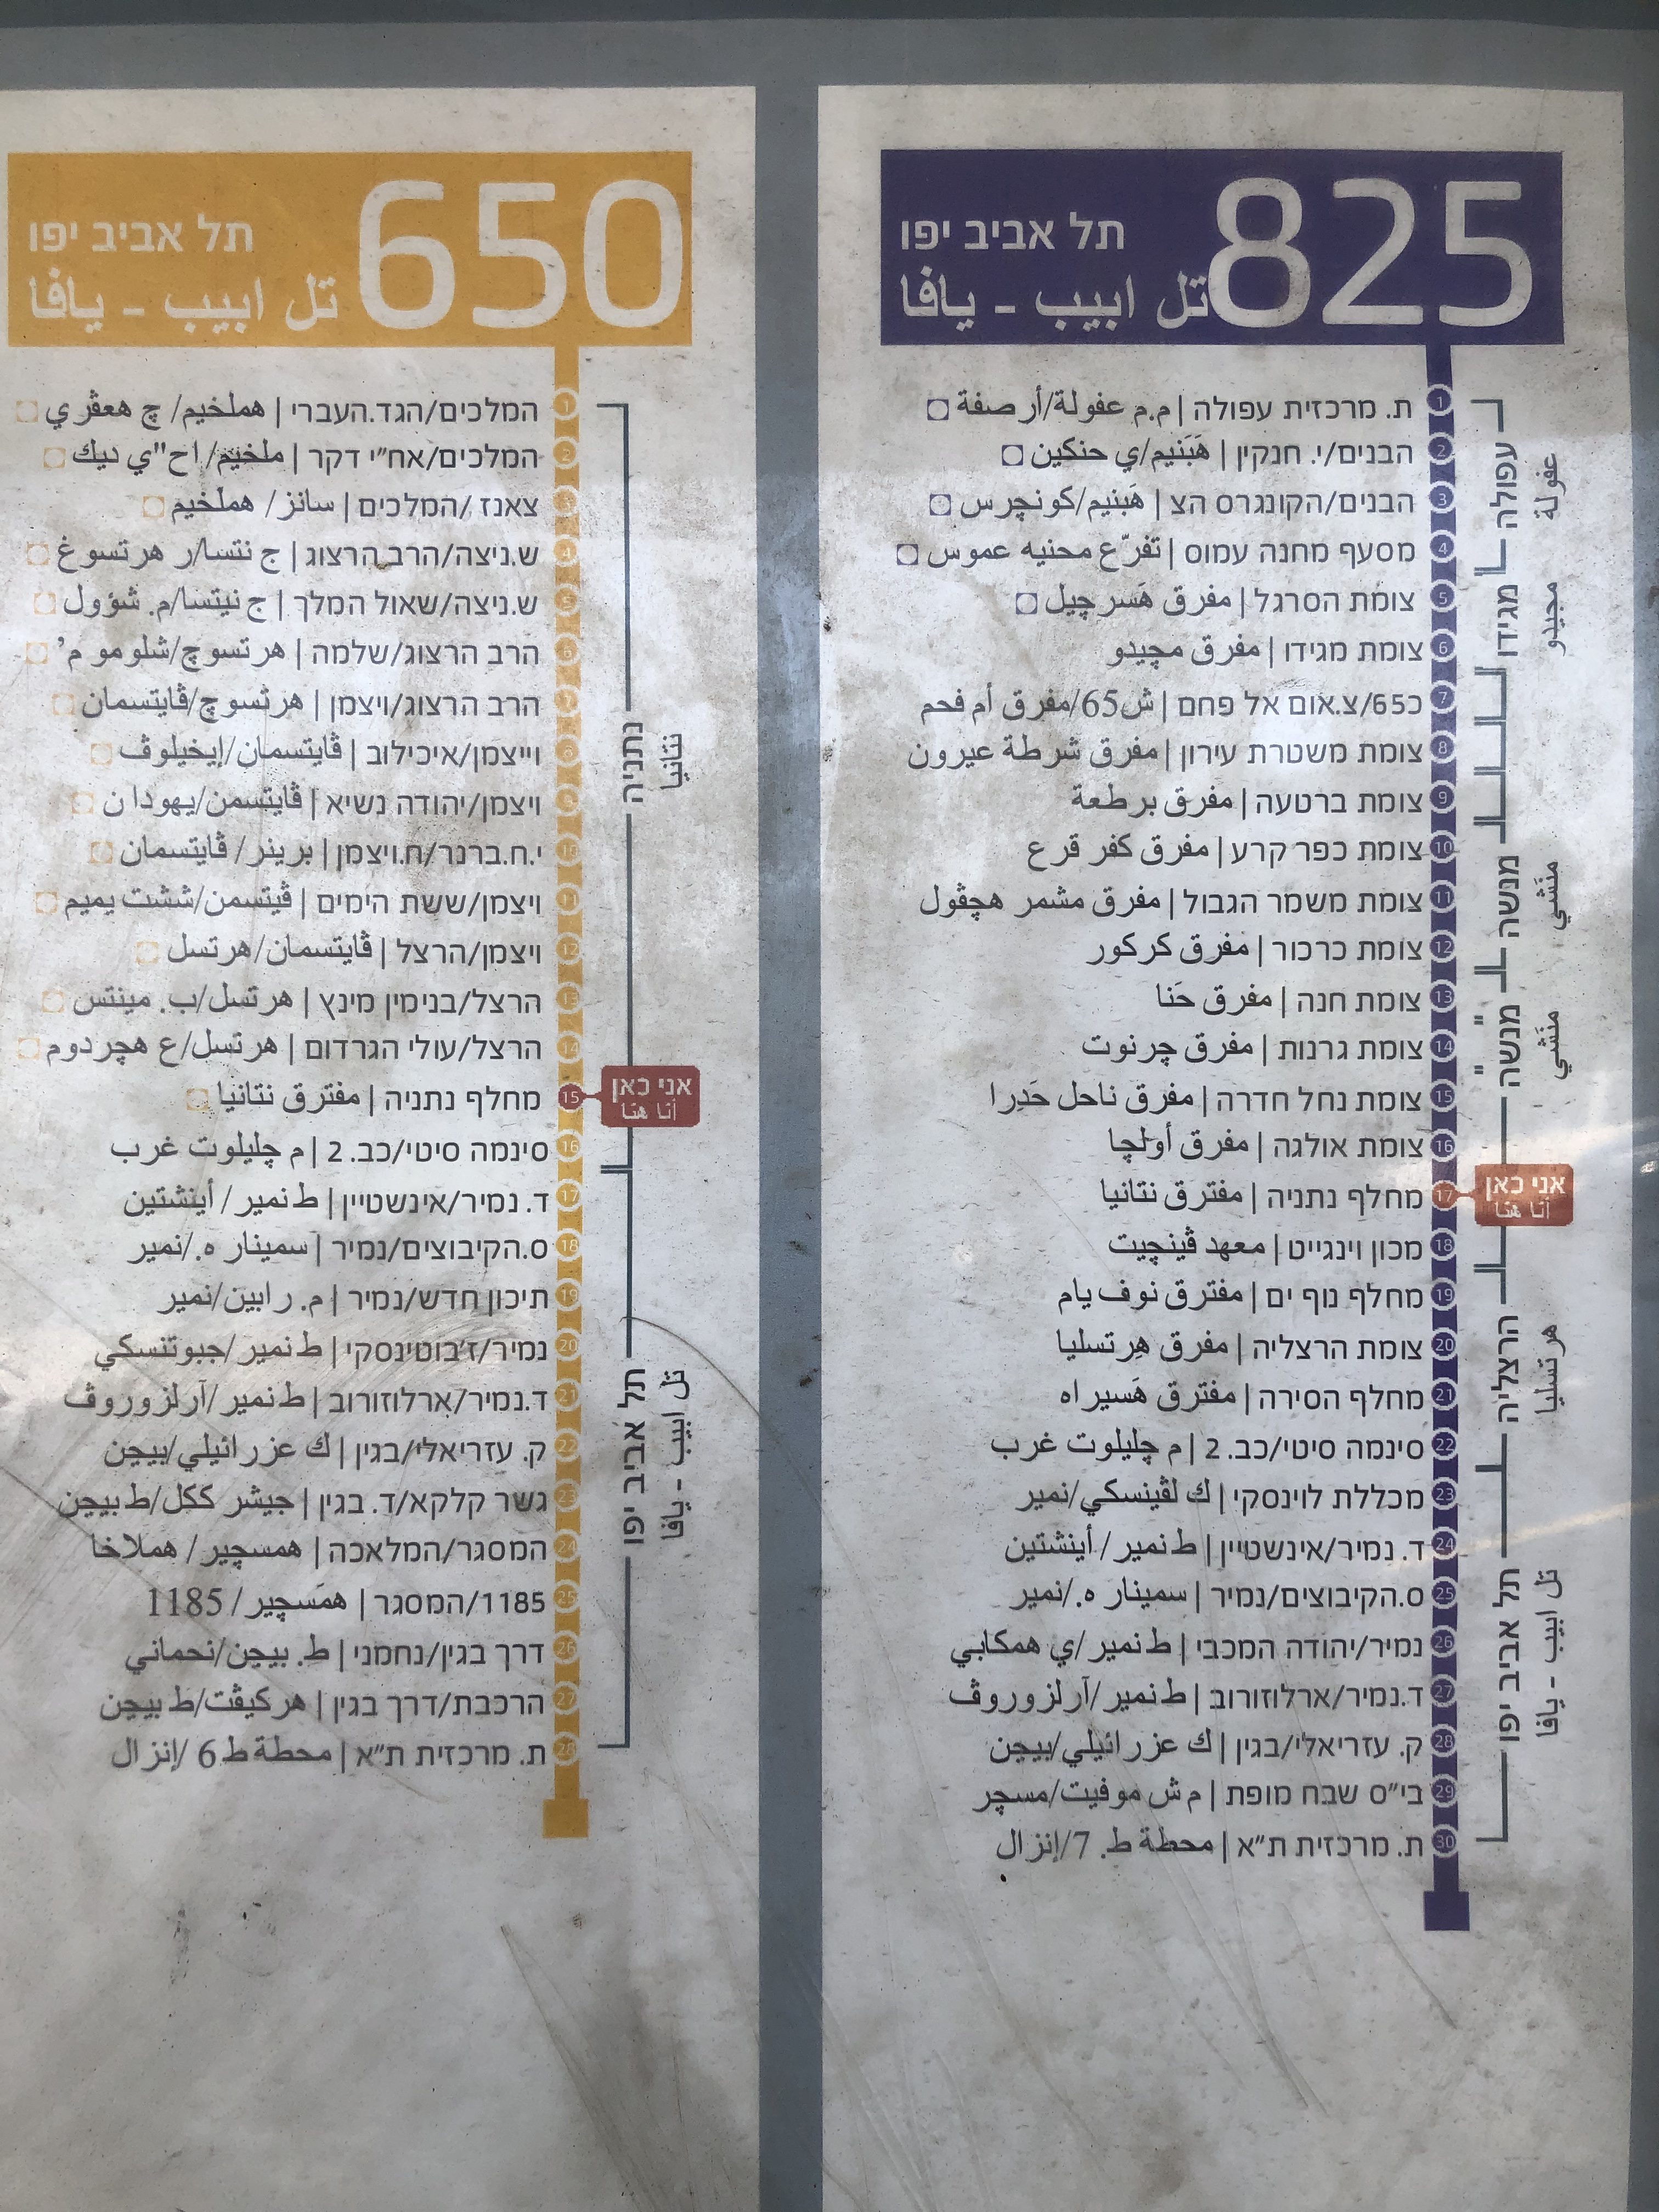 825
תל אביב יפו
تل ابيب - يافا
1 ת. מרכזית עפולה | م.م عفولة/أرصفة
2 הבנים/י. חנקין | هَبَنيم/ي حنكين
3 הבנים/הקונגרס הצ | هَبنيم/كونچرس
4 מסעף מחנה עמוס | تفرّع محنيه عموس
5 צומת הסרגל | مفرق هَسرچيل
6 צומת מגידו | مفرق مچيدو
7 כ65/צ.אום אל פחם | ش65/مفرق أم فحم
8 צומת משטרת עירון | مفرق شرطة عيرون
9 צומת ברטעה | مفرق برطعة
10 צומת כפר קרע | مفرق كفر قرع
11 צומת משמר הגבול | مفرق مشمر هچڤول
12 צומת כרכור | مفرق كركور
13 צומת חנה | مفرق حَنا
14 צומת גרנות | مفرق چرنوت
15 צומת נחל חדרה | مفرق ناحل حَدِرا
16 צומת אולגה | مفرق أولچا
17 מחלף נתניה | مفترق نتانيا
18 מכון וינגייט | معهد ڤينچيت
19 מחלף נוף ים | مفترق نوف يام
20 צומת הרצליה | مفرق هِرتسليا
21 מחלף הסירה | مفترق هَسيراه
22 סינמה סיטי/כב. 2 | م چليلوت غرب
23 מכללת לוינסקי | ك لڤينسكي/نمير
24 ד. נמיר/אינשטיין | ط نمير/أينشتين
25 ס.הקיבוצים/נמיר | سمينار ه./نمير
26 נמיר/יהודה המכבי | ط نمير/ي همكابي
27 ד.נמיר/ארלוזורוב | ط نمير/آرلزوروڤ
28 ק. עזריאלי/בגין | ك عزرائيلي/بيجن
29 בי״ס שבח מופת | م ش موفيت/مسچر
30 ת. מרכזית ת״א | محطة ط. 7/إنزال
עפולה
عفولة
מגידו
مجيدو
מנשה
منَشي
מנשה
منَشي
אני כאן
أنا هنا
הרצליה
هرتسليا
תל אביב יפו
تل ابيب - يافا
650
תל אביב יפו
تل ابيب - يافا
1 המלכים/הגד.העברי | هملخيم/ چ هعڤري
2 המלכים/אח״י דקר | ملخيم/اح"ي ديك
3 צאנז /המלכים | سانز/ هملخيم
4 ש.ניצה/הרב הרצוג | ج نتسا/ر هرتسوغ
5 ש.ניצה/שאול המלך | ج نيتسا/م. شؤول
6 הרב הרצוג/שלמה | هرتسوچ/شلومو م'
7 הרב הרצוג/ויצמן | هرتسوچ/ڤايتسمان
8 וייצמן/איכילוב | ڤايتسمان/إيخيلوڤ
9 ויצמן/יהודה נשיא | ڤايتسمن/يهودا ن
10 י.ח.ברנר/ח.ויצמן | برينر/ ڤايتسمان
11 ויצמן/ששת הימים | ڤيتسمن/ششت يميم
12 ויצמן/הרצל | ڤايتسمان/هرتسل
13 הרצל/בנימין מינץ | هرتسل/ب. مينتس
14 הרצל/עולי הגרדום | هرتسل/ع هچردوم
15 מחלף נתניה | مفترق نتانيا
16 סינמה סיטי/כב. 2 | م چليلوت غرب
17 ד. נמיר/אינשטיין | ط نمير/أينشتين
18 ס.הקיבוצים/נמיר | سمينار ه./نمير
19 תיכון חדש/נמיר | م. رابين/نمير
20 נמיר/ז׳בוטינסקי | ط نمير/جبوتنسكي
21 ד.נמיר/ארלוזורוב | ط نمير/آرلزوروڤ
22 ק. עזריאלי/בגין | ك عزرائيلي/بيجن
23 גשר קלקא/ד. בגין | جيشر ككل/ط بيجن
24 המסגר/המלאכה | همسچير/ هملاخا
25 1185/המסגר | همَسچير/ 1185
26 דרך בגין/נחמני | ط. بيجن/نحماني
27 הרכבת/דרך בגין | هركيڤت/ط بيجن
28 ת. מרכזית ת״א | محطة ط 6 /إنزال
נתניה
نتانيا
אני כאן
أنا هنا
תל אביב יפו
تل ابيب - يافا